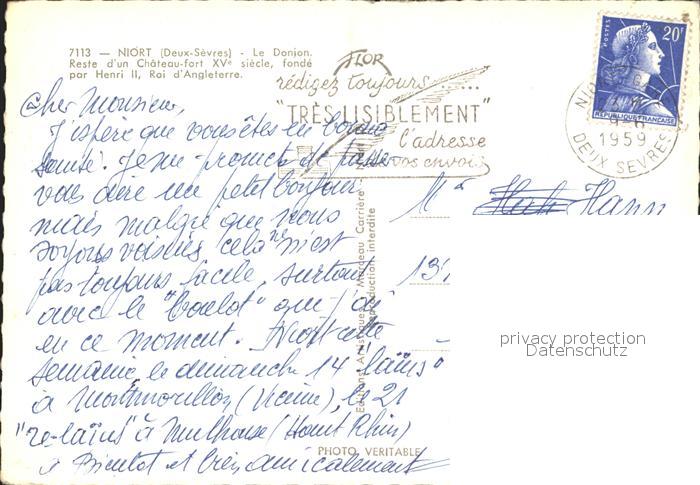 7113 — NIORT (Deux-Sèvres) - Le Donjon.
Reste d'un Château-fort XVe siècle, fondé
par Henri II, Roi d'Angleterre.
FLOR
rédigez toujours.....
"TRÈS LISIBLEMENT"
l'adresse
vos envois
20F
POSTES
REPUBLIQUE FRANÇAISE
NIORT
9-6
1959
DEUX SEVRES
Cher Monsieur,
J'espère que vous êtes en bonne
santé. Je me promets de passer
vous dire un petit bonjour
mais malgré que nous
soyons voisins, cela n'est
pas toujours facile, surtout
avec le "boulot" que j'ai
en ce moment. Niort cette
semaine, le dimanche 14
à Montmorillon (Vienne), le 21
à Mulhouse (Haut Rhin)
à Bientôt et bien amicalement
Mr Hann
13,
Editions Artistiques Mordeau Carrière Niort
Reproduction interdite
PHOTO VERITABLE
privacy protection
Datenschutz